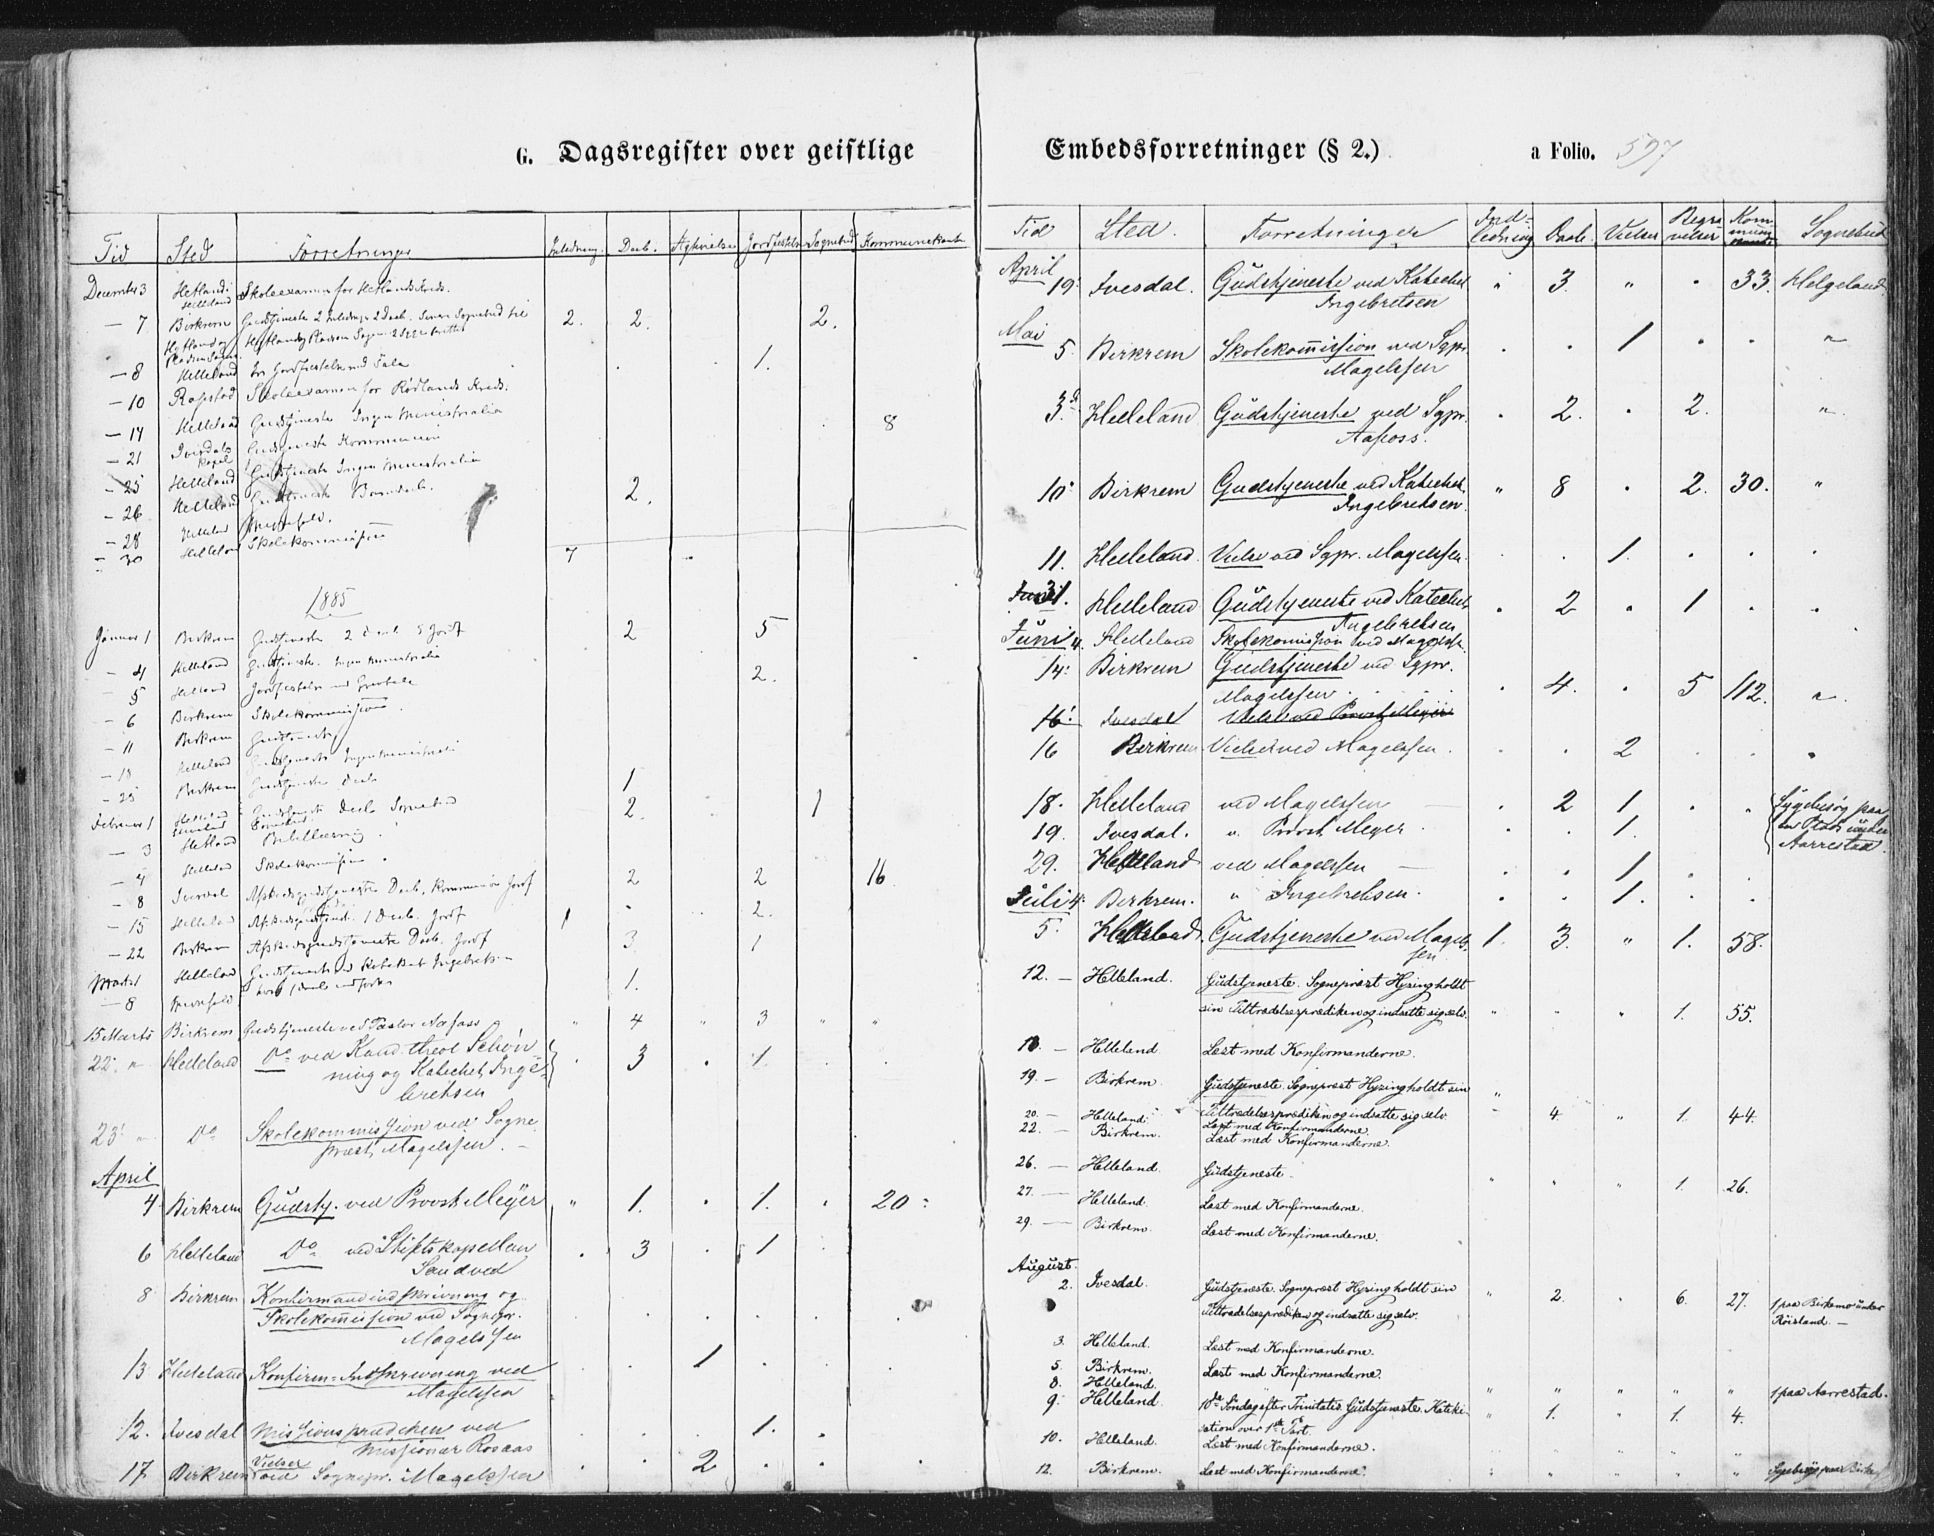 G. Dagsregister over geistlige
Tid Sted Forretninger Inledning. Daab. Ægtvielse Jordfæstelse Sognebud Kommunikanter
December 3 Hetland i Helleland Skoleexamen for Hetlands Kreds.
— 7 Birkrem Gudstjeneste 2 Inledninger 2 Daab. 2. 2. 2.
— 8 Helleland Jordfæstelse med Tale 1.
— 10 Rapstad Skoleexamen for Rødlands Kreds.
— 14 Helleland Gudstjeneste Ingen Ministerialia
— 21 Ivesdals Kapel Gudstjeneste Kommunion 8
— 25 Helleland Gudstjeneste Ingen Ministerialia
— 26 Helleland Gudstjeneste Barnedaab. 2.
— 28 Helleland Messefald.
— 30 Helleland Skolekommission
7
1885
Januar 1 Birkrem Gudstjeneste 2 Daab 5 Jordf 2 5
— 4 Helleland Gudstjeneste. Ingen Ministerialia
— 5 Helleland Jordfæstelse med Gravtale 2.
— 6 Birkrem Skolekommission.
— 11 Birkrem Gudstjeneste
— 18 Helleland Gudstjeneste Ingen Ministeriali
— 25 Birkrem Gudstjeneste Daab 1
Februar 1 Helleland Gudstjeneste Daab Sognebud 2. 1
— 3 Hetland Bibellæsning.
— 4 Helleland Skolekommission.
— 8 Ivesdal Afskedsgudstjeneste Daab, Kommunion Jordf 2 2 16
— 15 Helleland Afskedsgudstjen. 1 Daab. Jordf 1 2.
— 22 Birkrem Afskedsgudstjeneste Daab. Jordf 3 1
Marts 1 Helleland Gudstjeneste ved Kateket Ingebretsen 1.
— 8 Messefald.
15 Marts Birkrem Gudstjeneste ved Pastor Aafoss " 4 " 3 " "
22. " Helleland Do ved Kand. theol Schøn- . 3 . 1. . .
ning og Katechet Inge-
bretsen
23. " Do Skolekommission ved Sogne
præst Magelssen. —
April
4. Birkrem Gudstj. ved Provst Meyer " 1. . 1. . 20 :
6 Helleland Do ved Stiftskapellan . 3 . 1 .
Sandved
8 Birkrem Konfirmandindskrivning og
Skolekommission ved Sognepr.
Magelssen
13 Helleland Konfirm-Indskrivning ved . . 1 . . .
Magelssen
12. Ivesdal Missionsprædiken ved . . . 1. .
Missionær Rosaas
17 Birkrem Vielser ved Sognepr. Magelssen . . 2 . . .
Embedsforretninger (§ 2.) a Folio. 597
Tid Sted. Forretninger Ind-ledning Daab. Vielser Begravelser Kommunikanter Sognebud
April
19. Ivesdal. Gudstjeneste ved Katechet " 3. " . 33. Helgeland.
Ingebretsen
Mai
5. Birkrem Skolekommission ved Sgpr. . . 1 . . "
Magelssen
3d. Helleland Gudstjeneste ved Sgpr. . 2. . 2. "
Aafoss.
10. Birkrem Gudstjeneste ved Katechet " 8 . 2. 30. "
Ingebretsen.
11. Helleland. Vielse ved Sgpr. Magelssen. . . 1. . . .
31. Helleland Gudstjeneste ved Katechet . 2 . 1 . .
Ingebretsen
Juni 4. Helleland Skolekommission ved Magelssen
14. Birkrem Gudstjeneste ved Sgpr.
Magelssen . 4. . 5 112. "
16. Ivesdal Vielse ved Provst Meyer
16 Birkrem Vielse ved Magelssen. . . 2 . . .
18. Helleland ved Magelssen — . 2 1. . " Sygebesøg paa
19. Ivesdal. v. Provst Meyer. . . 1. en Plads under
29. Helleland ved Magelssen — . . 1 . Aarrestad.
Juli 4. Birkrem. " Ingebretsen. . . 1. . .
5. Helleland Gudstjeneste ved Magels- 1. 3. " 1. 58.
sen
12. — Helleland. Gudstjeneste. Sognepræst Hyzing holdt
sin Tiltrædelsesprædiken og indsatte sig selv. " " " 1. 55.
13. — Helleland Læst med Konfirmanderne.
19. — Birkrem. Gudstjeneste. Sognepræst Hyzing holdt sin "
Tiltrædelsesprædiken og indsatte sig selv 4. " 1. 44.
20. — Helleland. Læst med Konfirmanderne.
22. — Birkrem. Læst med Konfirmanderne.
26. — Helleland. Gudstjeneste. " " " 1. 26.
27. — Helleland. Læst med Konfirmanderne.
29. — Birkrem. Læst med Konfirmanderne.
August.
2. Ivesdal. Gudstjeneste. Sognepræst Hyzing holdt sin " 2. " 6. 27. 1 paa Birkemo under
Tiltrædelsesprædiken og indsatte sig selv. Röisland. —
3. Helleland. Læst med Konfirmanderne.
5. Birkrem. Læst med Konfirmanderne.
8. Helleland. " " " " " " 1 paa Aarrestad.
9. Helleland 10de Söndag efter Trinitatis. Gudstjeneste. Kateki- " 1. " 1. 4.
sation over 1ste Part.
10. Helleland. Læst med Konfirmanderne.
12. Birkrem. Læst med Konfirmanderne. " " " " " Sygebesøg paa